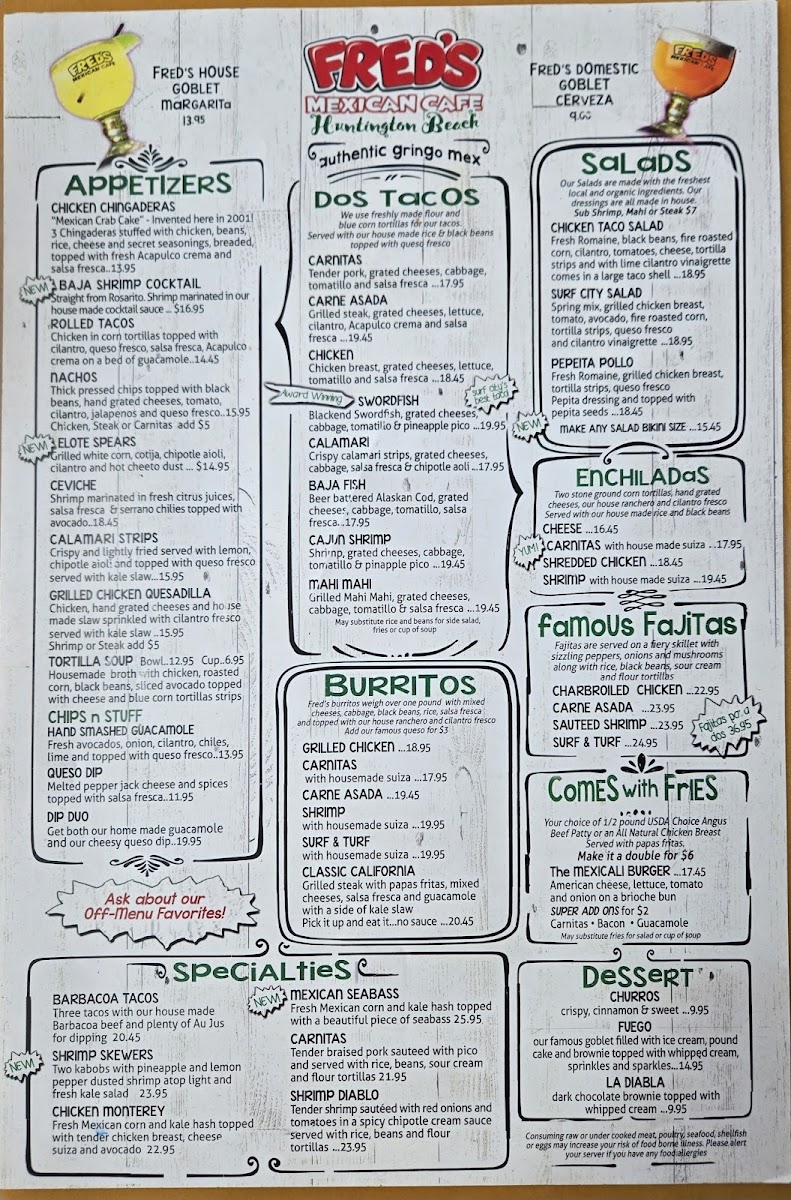 FRED'S
MEXICAN CAFE
Huntington Beach
authentic gringo mex
FRED'S
MEXICAN CAFE
FRED'S HOUSE
GOBLET
MARGARITA
13.95
FRED'S DOMESTIC
GOBLET
CERVEZA
9.00
FRED'S
MEXICAN CAFE
APPETIZERS
CHICKEN CHINGADERAS
"Mexican Crab Cake" - Invented here in 2001!
3 Chingaderas stuffed with chicken, beans,
rice, cheese and secret seasonings, breaded,
topped with fresh Acapulco crema and
salsa fresca..13.95
NEW!
BAJA SHRIMP COCKTAIL
Straight from Rosarito. Shrimp marinated in our
house made cocktail sauce ... $16.95
ROLLED TACOS
Chicken in corn tortillas topped with
cilantro, queso fresco, salsa fresca, Acapulco
crema on a bed of guacamole..14.45
NACHOS
Thick pressed chips topped with black
beans, hand grated cheeses, tomato,
cilantro, jalapenos and queso fresco..15.95
Chicken, Steak or Carnitas add $5
NEW!
ELOTE SPEARS
Grilled white corn, cotija, chipotle aioli,
cilantro and hot cheeto dust ... $14.95
CEVICHE
Shrimp marinated in fresh citrus juices,
salsa fresca & serrano chilies topped with
avocado..18.45
CALAMARI STRIPS
Crispy and lightly fried served with lemon,
chipotle aioli and topped with queso fresco
served with kale slaw...15.95
GRILLED CHICKEN QUESADILLA
Chicken, hand grated cheeses and house
made slaw sprinkled with cilantro fresco
served with kale slaw ..15.95
Shrimp or Steak add $5
TORTILLA SOUP Bowl..12.95 Cup..6.95
Housemade broth with chicken, roasted
corn, black beans, sliced avocado topped
with cheese and blue corn tortillas strips
CHIPS n STUFF
HAND SMASHED GUACAMOLE
Fresh avocados, onion, cilantro, chiles,
lime and topped with queso fresco..13.95
QUESO DIP
Melted pepper jack cheese and spices
topped with salsa fresca..11.95
DIP DUO
Get both our home made guacamole
and our cheesy queso dip..19.95
Ask about our
Off-Menu Favorites!
DOS TACOS
We use freshly made flour and
blue corn tortillas for our tacos.
Served with our house made rice & black beans
topped with queso fresco
CARNITAS
Tender pork, grated cheeses, cabbage,
tomatillo and salsa fresca ...17.95
CARNE ASADA
Grilled steak, grated cheeses, lettuce,
cilantro, Acapulco crema and salsa
fresca ...19.45
CHICKEN
Chicken breast, grated cheeses, lettuce,
tomatillo and salsa fresca ...18.45
Award Winning
SWORDFISH
surf city's
best taco
Blackend Swordfish, grated cheeses,
cabbage, tomatillo & pineapple pico ...19.95
CALAMARI
Crispy calamari strips, grated cheeses,
cabbage, salsa fresca & chipotle aoli ...17.95
BAJA FISH
Beer battered Alaskan Cod, grated
cheeses, cabbage, tomatillo, salsa
fresca..17.95
CAJUN SHRIMP
Shrimp, grated cheeses, cabbage,
tomatillo & pinapple pico ...19.45
MAHI MAHI
Grilled Mahi Mahi, grated cheeses,
cabbage, tomatillo & salsa fresca ...19.45
May substitute rice and beans for side salad,
fries or cup of soup
BURRITOS
Fred's burritos weigh over one pound with mixed
cheeses, cabbage, black beans, rice, salsa fresca
and topped with our house ranchero and cilantro fresco
Add our famous queso for $3
GRILLED CHICKEN ...18.95
CARNITAS
with housemade suiza ...17.95
CARNE ASADA ...19.45
SHRIMP
with housemade suiza ...19.95
SURF & TURF
with housemade suiza ...19.95
CLASSIC CALIFORNIA
Grilled steak with papas fritas, mixed
cheeses, salsa fresca and guacamole
with a side of kale slaw
Pick it up and eat it...no sauce ...20.45
SALADS
Our Salads are made with the freshest
local and organic ingredients. Our
dressings are all made in house.
Sub Shrimp, Mahi or Steak $7
CHICKEN TACO SALAD
Fresh Romaine, black beans, fire roasted
corn, cilantro, tomatoes, cheese, tortilla
strips and with lime cilantro vinaigrette
comes in a large taco shell ...18.95
SURF CITY SALAD
Spring mix, grilled chicken breast,
tomato, avocado, fire roasted corn,
tortilla strips, queso fresco
and cilantro vinaigrette ...18.95
PEPEITA POLLO
Fresh Romaine, grilled chicken breast,
tortilla strips, queso fresco
Pepita dressing and topped with
pepita seeds ...18.45
NEW!
MAKE ANY SALAD BIKINI SIZE ...15.45
ENCHILADAS
Two stone ground corn tortillas, hand grated
cheeses, our house ranchero and cilantro fresco
Served with our house made rice and black beans
CHEESE ...16.45
YUM!
CARNITAS with house made suiza ...17.95
SHREDDED CHICKEN ...18.45
SHRIMP with house made suiza ...19.45
FAMOUS FAJITAS
Fajitas are served on a fiery skillet with
sizzling peppers, onions and mushrooms
along with rice, black beans, sour cream
and flour tortillas
CHARBROILED CHICKEN ...22.95
CARNE ASADA ...23.95
SAUTEED SHRIMP ...23.95
SURF & TURF ...24.95
Fajitas para
dos 36.95
COMES with FRIES
Your choice of 1/2 pound USDA Choice Angus
Beef Patty or an All Natural Chicken Breast
Served with papas fritas.
Make it a double for $6
The MEXICALI BURGER ...17.45
American cheese, lettuce, tomato
and onion on a brioche bun
SUPER ADD ONS for $2
Carnitas • Bacon • Guacamole
May substitute fries for salad or cup of soup
SPECIALTIES
BARBACOA TACOS
Three tacos with our house made
Barbacoa beef and plenty of Au Jus
for dipping 20.45
NEW!
SHRIMP SKEWERS
Two kabobs with pineapple and lemon
pepper dusted shrimp atop light and
fresh kale salad 23.95
CHICKEN MONTEREY
Fresh Mexican corn and kale hash topped
with tender chicken breast, cheese
suiza and avocado 22.95
NEW!
MEXICAN SEABASS
Fresh Mexican corn and kale hash topped
with a beautiful piece of seabass 25.95
CARNITAS
Tender braised pork sauteed with pico
and served with rice, beans, sour cream
and flour tortillas 21.95
SHRIMP DIABLO
Tender shrimp sautéed with red onions and
tomatoes in a spicy chipotle cream sauce
served with rice, beans and flour
tortillas ...23.95
DESSERT
CHURROS
crispy, cinnamon & sweet ...9.95
FUEGO
our famous goblet filled with ice cream, pound
cake and brownie topped with whipped cream,
sprinkles and sparkles...14.95
LA DIABLA
dark chocolate brownie topped with
whipped cream ...9.95
Consuming raw or under cooked meat, poultry, seafood, shellfish
or eggs may increase your risk of food borne illness. Please alert
your server if you have any food allergies